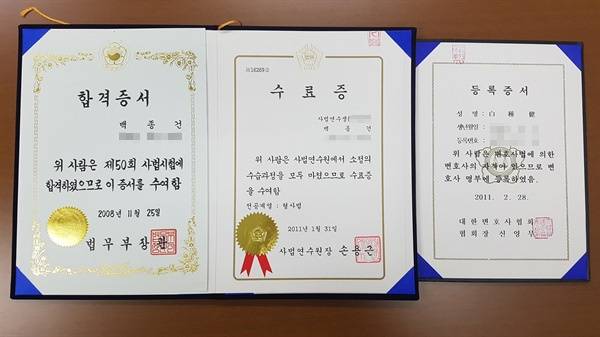 합격증서
백종건
위 사람은 제50회 사법시험에
합격하였으므로 이 증서를 수여함
2008년 11월 25일
법무부장관
제16289호
수료증
사법연수생
백종건
위 사람은 사법연수원에서 소정의
수습과정을 모두 마쳤으므로 수료증
을 수여함
전공계열 : 형사법
2011년 1월 31일
사법연수원장 손용근
등록증서
성명 : 白種健
생년월일 :
등록번호 :
위 사람은 변호사법에 의한
변호사의 자격이 있으므로 변
호사 명부에 등록하였음.
2011. 2. 28.
대한변호사협회
협회장 신영무